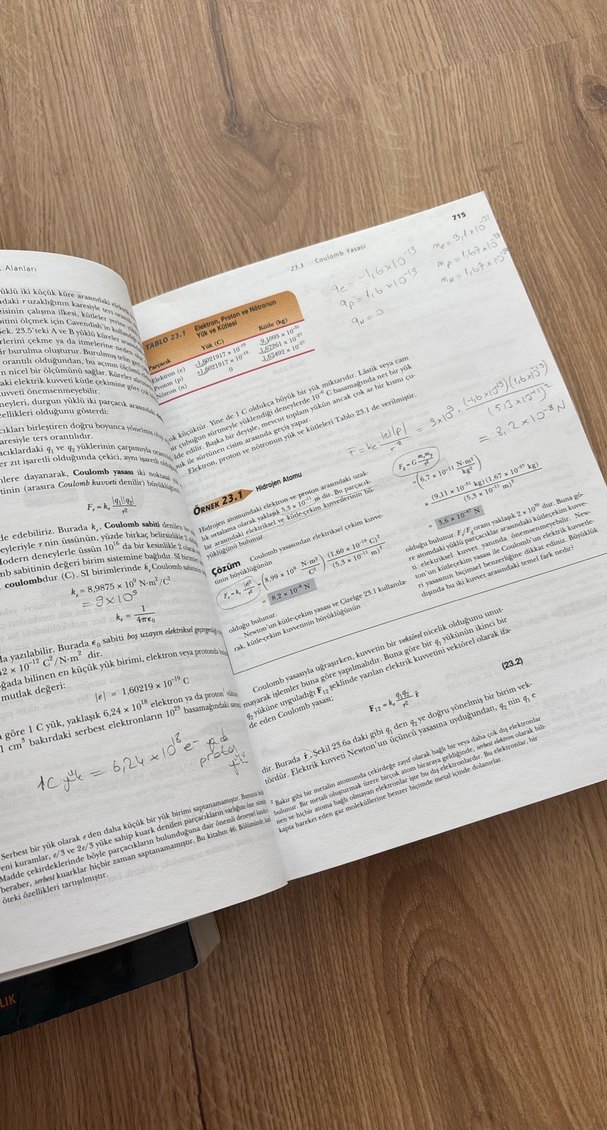 Alanları
yüklü iki küçük küre arasındaki
daki r uzaklığının karesiyle ters
risinin çalışma ilkesi, kütleler yerine
bitini ölçmek için Cavendish'in
ek. 23.5'teki A ve B yüklü küreler
lerini çekme ya da itmelerine neden
ir burulma oluşturur. Burulmuş telin
orantılı olduğundan, bu açının ölçümü
n nicel bir ölçümünü sağlar. Küreler
daki elektrik kuvveti kütle çekimine göre çok
kuvveti önemsenmeyebilir.
neyleri, durgun yüklü iki parçacık arasındaki
zellikleri olduğunu gösterdi:
cıkları birleştiren doğru boyunca yönelmiş
karesiyle ters orantılıdır.
acıklardaki q₁ ve q₂ yüklerinin çarpımıyla orantılı
er zıt işaretli olduğunda çekici, aynı işaretli
nlere dayanarak, Coulomb yasası iki noktasal
tinin (arasıra Coulomb kuvveti denilir) büyüklüğü
Fₑ = kₑ |q₁||q₂| / r²
de edebiliriz. Burada kₑ, Coulomb sabiti denilen
neyleriyle r nin üssünün, yüzde birkaç belirsizlikle 2
Modern deneylerle üssün 10¹⁶ da bir kesinlikle 2
mb sabitinin değeri birim sistemine bağlıdır. SI
coulombdur (C). SI birimlerinde kₑ Coulomb sabiti
kₑ = 8,9875 x 10⁹ N·m²/C²
= 9x10⁹
kₑ = 1 / 4πϵ₀
da yazılabilir. Burada ϵ₀ sabiti boş uzayın elektriksel geçirgenliği
42 × 10⁻¹² C²/N·m² dir.
ğada bilinen en küçük yük birimi, elektron veya protonda
mutlak değeri:
|e| = 1,60219 × 10⁻¹⁹ C
göre 1 C yük, yaklaşık 6,24 × 10¹⁸ elektron ya da proton
1 cm³ bakırdaki serbest elektronların 10²³ basamağındaki
1C yük = 6,24 x 10¹⁸ e⁻ ya da
proton
yük
Serbest bir yük olarak e den daha küçük bir yük birimi saptanamamıştır.
eni kuramlar, e/3 ve 2e/3 yüke sahip kuark denilen parçacıkların varlığını
Madde çekirdeklerinde böyle parçacıkların bulunduğuna dair önemli deneysel
beraber, serbest kuarklar hiçbir zaman saptanamamıştır. Bu kitabın 46. Bölümünde
öteki özellikleri tartışılmıştır.
23.3 Coulomb Yasası 715
qe = -1,6x10⁻¹⁹
qp = 1,6x10⁻¹⁹
qn = 0
me = 9,1x10⁻³¹
mp = 1,67x10⁻²⁷
mn = 1,67x10⁻²⁷
TABLO 23.1 Elektron, Proton ve Nötronun
Yük ve Kütlesi
Parçacık Yük (C) Kütle (kg)
Elektron (e) -1,6021917 × 10⁻¹⁹ 9,1095 × 10⁻³¹
Proton (p) +1,6021917 × 10⁻¹⁹ 1,67261 × 10⁻²⁷
Nötron (n) 0 1,67492 × 10⁻²⁷
çok küçüktür. Yine de 1 C oldukça büyük bir yük miktarıdır. Lâstik veya cam
bir çubuğun sürtmeyle yüklendiği deneylerde 10⁻⁶ C basamağında net bir yük
elde edilir. Başka bir deyişle, mevcut toplam yükün ancak çok az bir kısmı çu-
buk ile sürtünen cisim arasında geçiş yapar.
Elektron, proton ve nötronun yük ve kütleleri Tablo 23.1 de verilmiştir.
F = ke |e||p| / r² = 9x10⁹ · (1,6x10⁻¹⁹)(1,6x10⁻¹⁹) / (5,3x10⁻¹¹)²
= 8,2x10⁻⁸ N
ÖRNEK 23.1 Hidrojen Atomu
Hidrojen atomundaki elektron ve proton arasındaki uzak-
lık ortalama olarak yaklaşık 5.3 × 10⁻¹¹ m dir. Bu parçacık-
lar arasındaki elektriksel ve kütle-çekim kuvvetlerinin bü-
yüklüğünü bulunuz.
Çözüm Coulomb yasasından elektriksel çekim kuvve-
tinin büyüklüğünün
Fₑ = kₑ |e|² / r² = (8.99 × 10⁹ N·m² / C²) (1.60 × 10⁻¹⁹ C)² / (5.3 × 10⁻¹¹ m)²
= 8.2 × 10⁻⁸ N
olduğu bulunur.
Newton'un kütle-çekim yasası ve Çizelge 23.1 kullanıla-
rak, kütle-çekim kuvvetinin büyüklüğünün
F_g = G mₑm_p / r²
= (6.7 × 10⁻¹¹ N·m² / kg²)
× (9.11 × 10⁻³¹ kg)(1.67 × 10⁻²⁷ kg) / (5.3 × 10⁻¹¹ m)²
= 3.6 × 10⁻⁴⁷ N
olduğu bulunur. Fₑ/F_g oranı yaklaşık 2 × 10³⁹ dur. Buna gö-
re atomdaki yüklü parçacıklar arasındaki kütleçekim kuvve-
ti elektriksel kuvvet yanında önemsenmeyebilir. New-
ton'un kütleçekim yasası ile Coulomb'un elektrik kuvvede-
ri yasasının biçimsel benzerliğine dikkat ediniz. Büyüklük
dışında bu iki kuvvet arasındaki temel fark nedir?
Coulomb yasasıyla uğraşırken, kuvvetin bir vektörel nicelik olduğunu unut-
mayarak işlemler buna göre yapılmalıdır. Buna göre bir q₁ yükünün ikinci bir
q₂ yüküne uyguladığı F₁₂ şeklinde yazılan elektrik kuvvetini vektörel olarak ifa-
de eden Coulomb yasası;
F₁₂ = kₑ q₁q₂ / r² r̂ (23.2)
dir. Burada r̂, Şekil 23.6a daki gibi q₁ den q₂ ye doğru yönelmiş bir birim vek-
tördür. Elektrik kuvveti Newton'un üçüncü yasasına uyduğundan, q₂ nin q₁ e
² Bakır gibi bir metalin atomunda çekirdeğe zayıf olarak bağlı bir veya daha çok dış elektronlar
bulunur. Bir metali oluşturmak üzere birçok atom biraraya geldiğinde, serbest elektron olarak bili-
nen ve hiçbir atoma bağlı olmayan elektronlar işte bu dış elektronlardır. Bu elektronlar, bir
kapta hareket eden gaz moleküllerine benzer biçimde metal içinde dolanırlar.
LIK